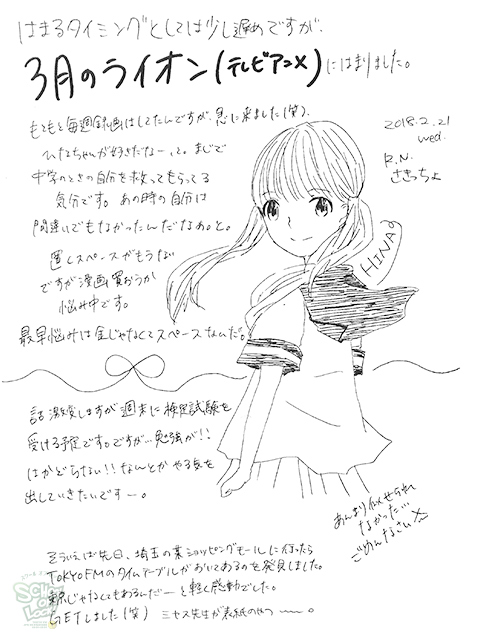 はまるタイミングとしては少し遅めですが、
3月のライオン(テレビアニメ)にはまりました。
もともと毎週録画はしてたんですが、急に来ました(笑)。
ひなちゃんが好きだなー、と。まじで
中学のときの自分を救ってもらってる
気分です。あの時の自分は
間違いでもなかったんだなあ。と。
置くスペースがもうない
ですが漫画買おうか
悩み中です。
最早悩みは金じゃなくてスペースなんだ。
2018.2.21
wed.
R.N.
さきっちょ
HINA
話激変しますが週末に検定試験を
受ける予定です。ですが…勉強が!!
はかどらない!!なんとかやる気を
出していきたいですー。
あんまり似せられ
なかった…
ごめんなさい
そういえば先日、埼玉の某ショッピングモールに行ったら
TOKYO FMのタイムテーブルがおいてあるのを発見しました。
東京じゃなくてもあるんだーと軽く感動でした。
GETしました(笑) ミセス先生が表紙のやつ 〜〜。